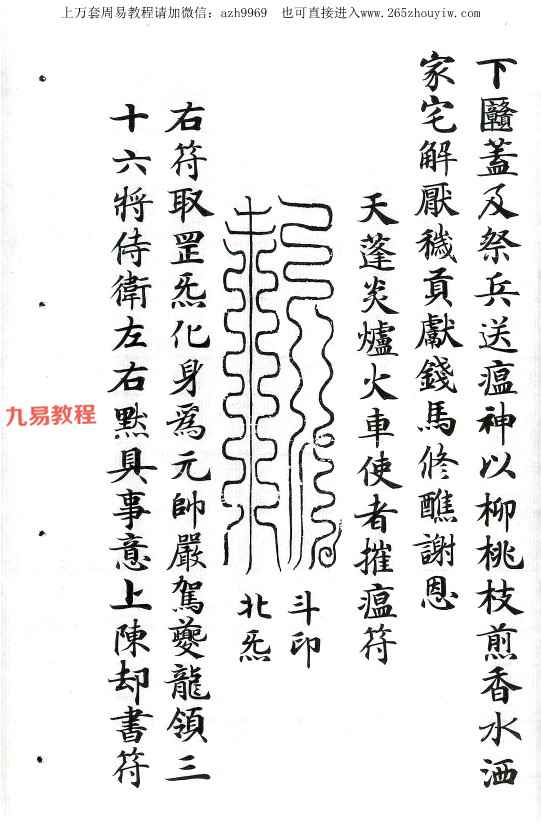 上万套周易教程请加微信：azh9969 也可直接进入www.265zhouyiw.com
下蓋及祭兵送瘟神以柳桃枝煎香水洒
家宅解厭穢貢獻錢馬修醮謝恩
天蓬炎爐火車使者摧瘟符
斗印
北炁
右符取罡炁化身爲元帥嚴駕夔龍領三
十六將侍衛左右默具事意上陳却書符
九易教程